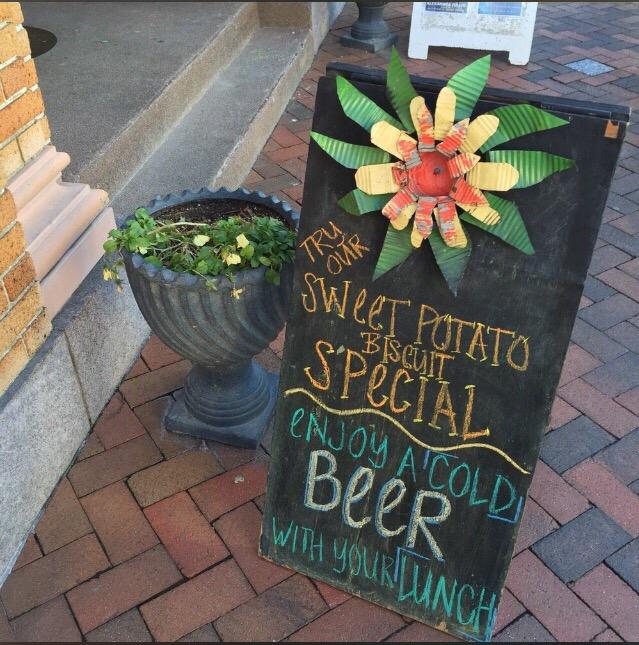 TRY
OUR
SWEET POTATO
BISCUIT
SPECIAL
ENJOY A COLD
BEER
WITH YOUR LUNCH